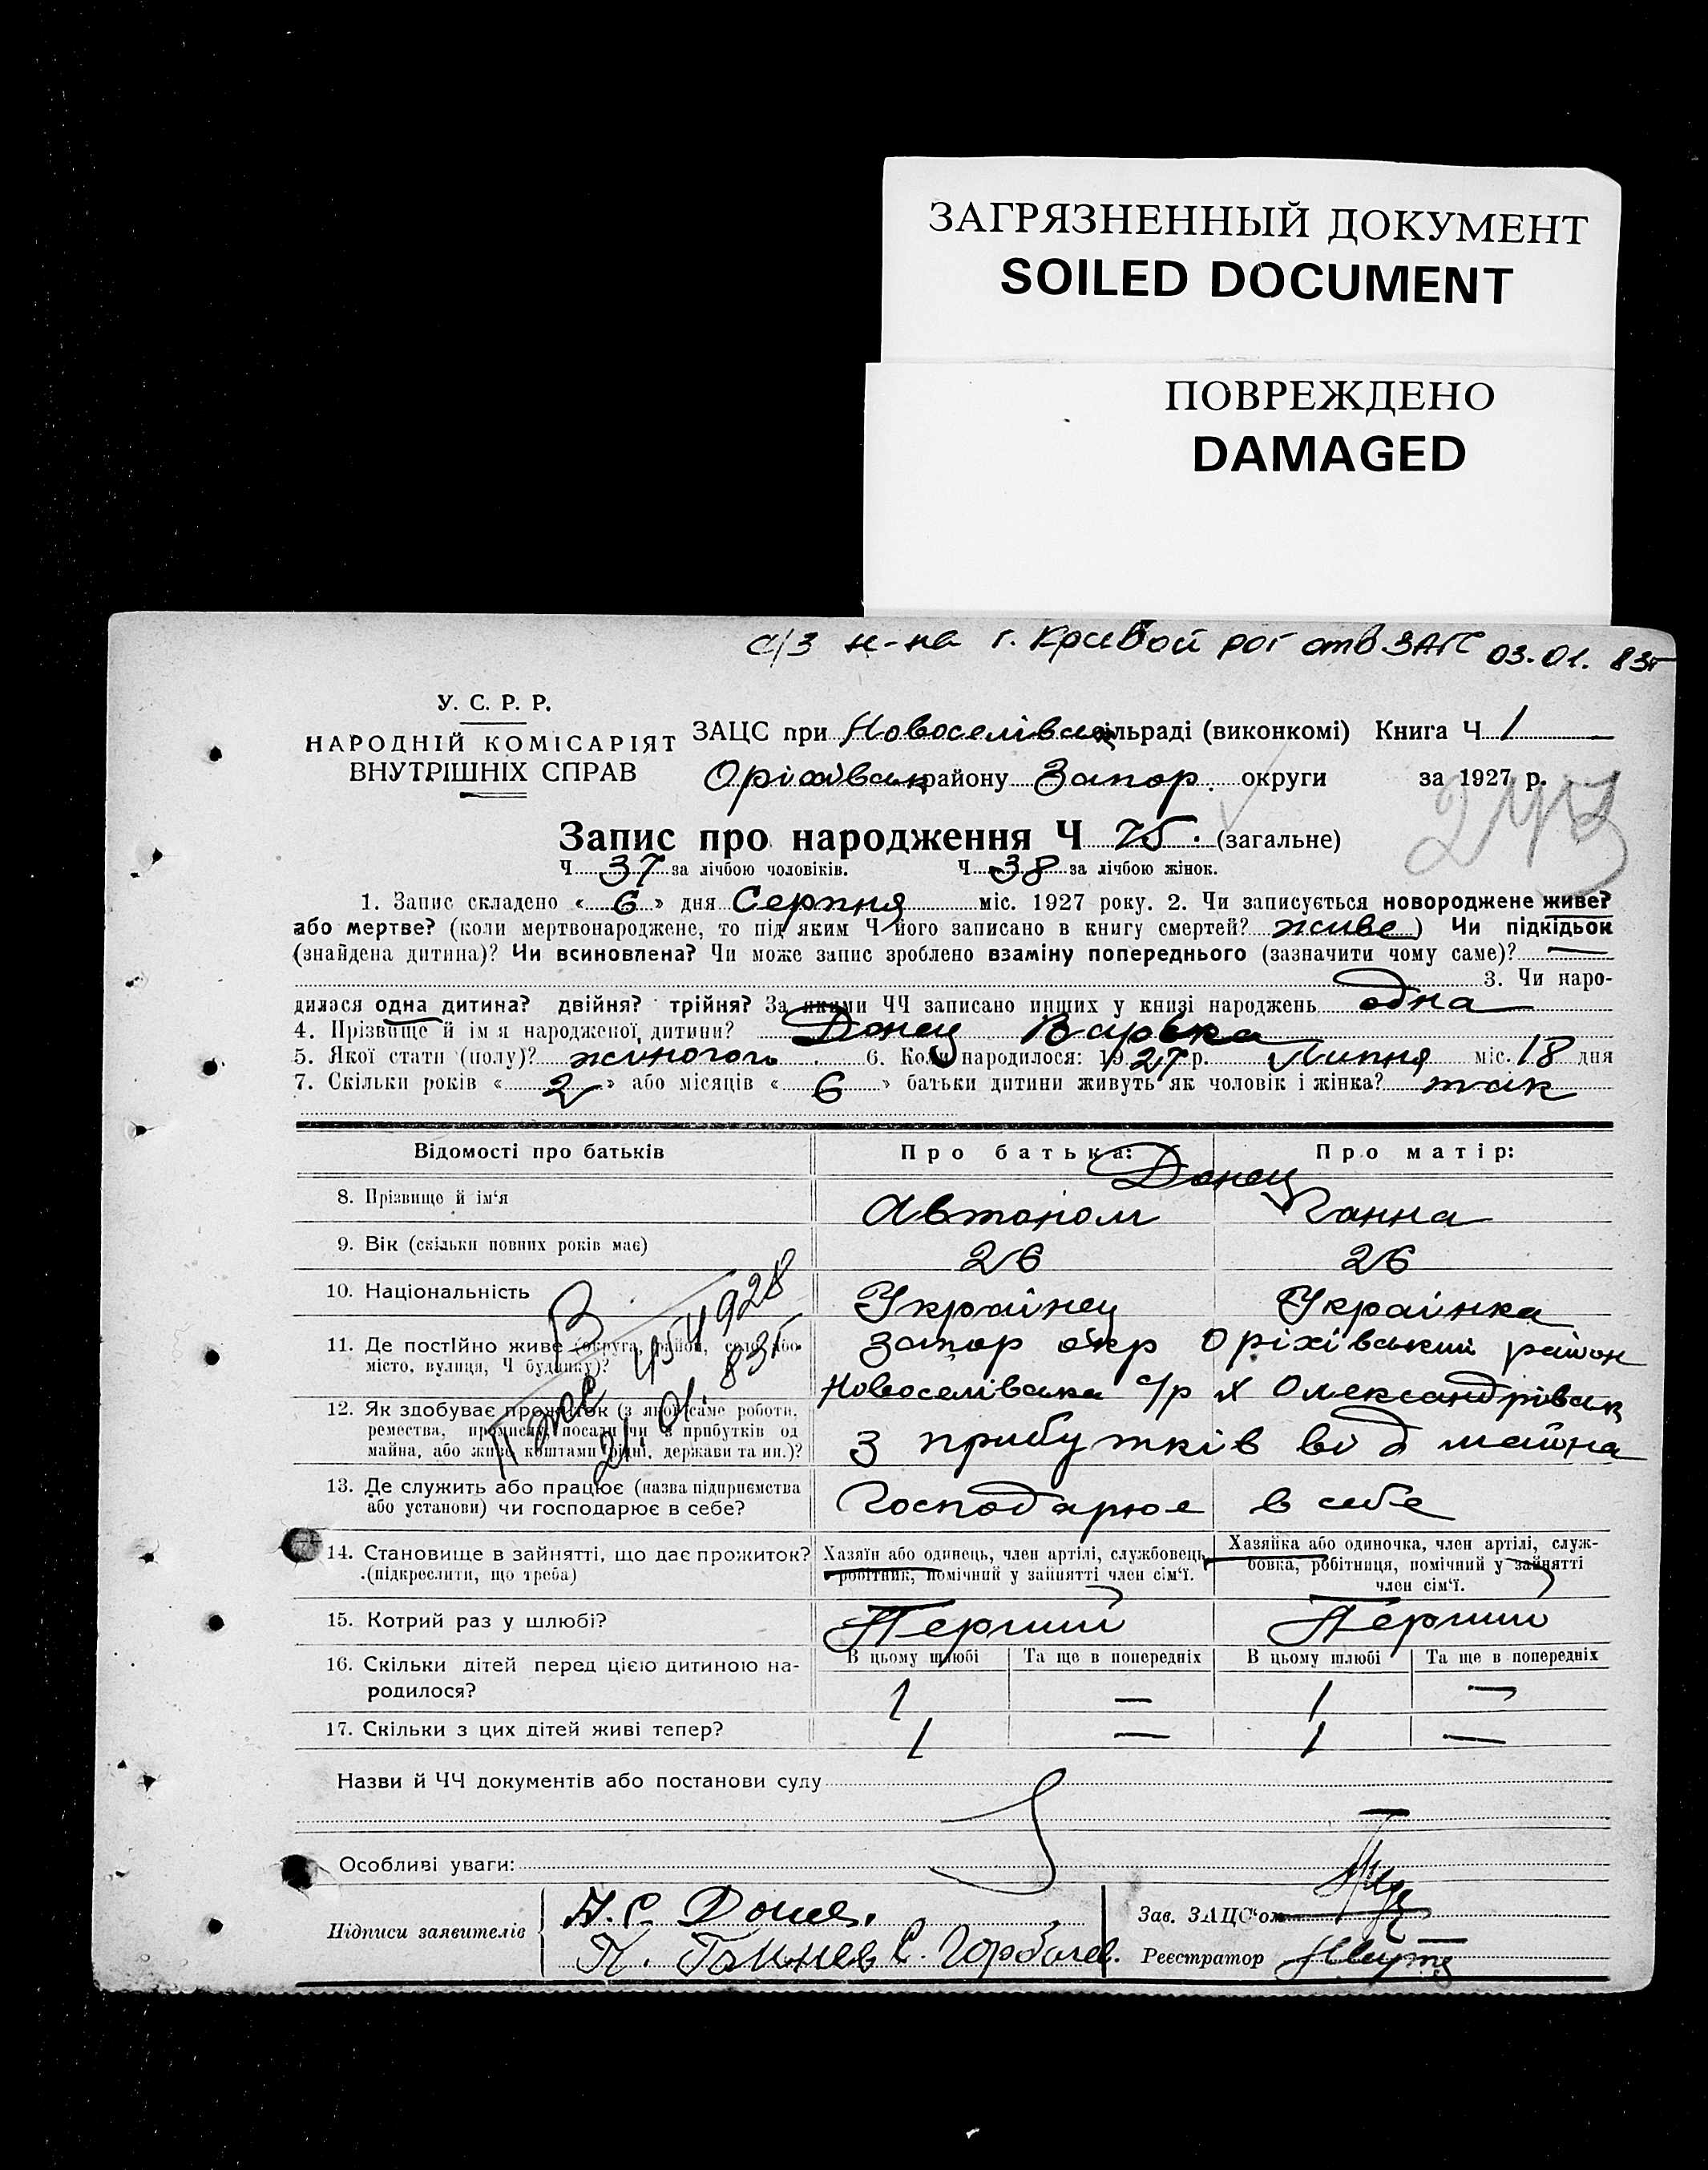 ЗАГРЯЗНЕННЫЙ ДОКУМЕНТ
SOILED DOCUMENT
ПОВРЕЖДЕНО
DAMAGED
г. Кривой рог отв ЗАГС 03.01.83г
У. С. Р. Р.
НАРОДНІЙ КОМІСАРІЯТ
ВНУТРІШНІХ СПРАВ
ЗАЦС при Новоселівськ сільраді (виконкомі) Книга Ч 1
Оріхівськ району Запор. округи за 1927 р.
243
Запис про народження Ч 75. (загальне)
Ч 37 за лічбою чоловіків. Ч 38 за лічбою жінок.
1. Запис складено «6» дня Серпня міс. 1927 року. 2. Чи записується новороджене живе?
або мертве? (коли мертвонароджене, то під яким Ч його записано в книгу смертей? живе) Чи підкідьок
(знайдена дитина)? Чи всиновлена? Чи може запис зроблено взаміну попереднього (зазначити чому саме)? —
3. Чи наро-
дилася одна дитина? двійня? трійня? За якими ЧЧ записано инших у книзі народжень одна
4. Прізвище й ім'я народженої дитини? Донец Варвка
5. Якої стати (полу)? жиночого. 6. Коли народилося: 1927 р. Липня міс. 18 дня
7. Скільки років «2» або місяців «6» батьки дитини живуть як чоловік і жінка? так
Відомості про батьків Про батька: Про матір:
Донец
8. Прізвище й ім'я Автоном Ганна
9. Вік (скільки повних років має) 26 26
10. Національність Украінец Украінка
11. Де постійно живе (округа, район, село або Запор окр Оріхівський район
місто, вулиця, Ч будинку)? Новоселівська с/р х Олександрівськ
12. Як здобуває прожиток (з якої саме роботи,
ремества, промислу, посади чи з прибутків од
майна, або живе коштами рідні, держави та ин.)? З прибутків від майна
13. Де служить або працює (назва підприємства
або установи) чи господарює в себе? Господарює в себе
14. Становище в зайнятті, що дає прожиток?
(підкреслити, що треба)
Хазяїн або одинець, член артілі, службовець,
робітник, помічний у зайнятті член сім'ї.
Хазяйка або одиночка, член артілі, служ-
бовка, робітниця, помічний у зайнятті
член сім'ї.
15. Котрий раз у шлюбі? Перший Перший
В цьому шлюбі Та ще в попередніх В цьому шлюбі Та ще в попередніх
16. Скільки дітей перед цією дитиною на-
родилося? 1 — 1 —
17. Скільки з цих дітей живі тепер? 1 — 1 —
928
21.01.83г
Назви й ЧЧ документів або постанови суду
Особливі уваги:
Підписи заявителів
С. Горбачев.
Зав. ЗАЦС'ом
Реєстратор